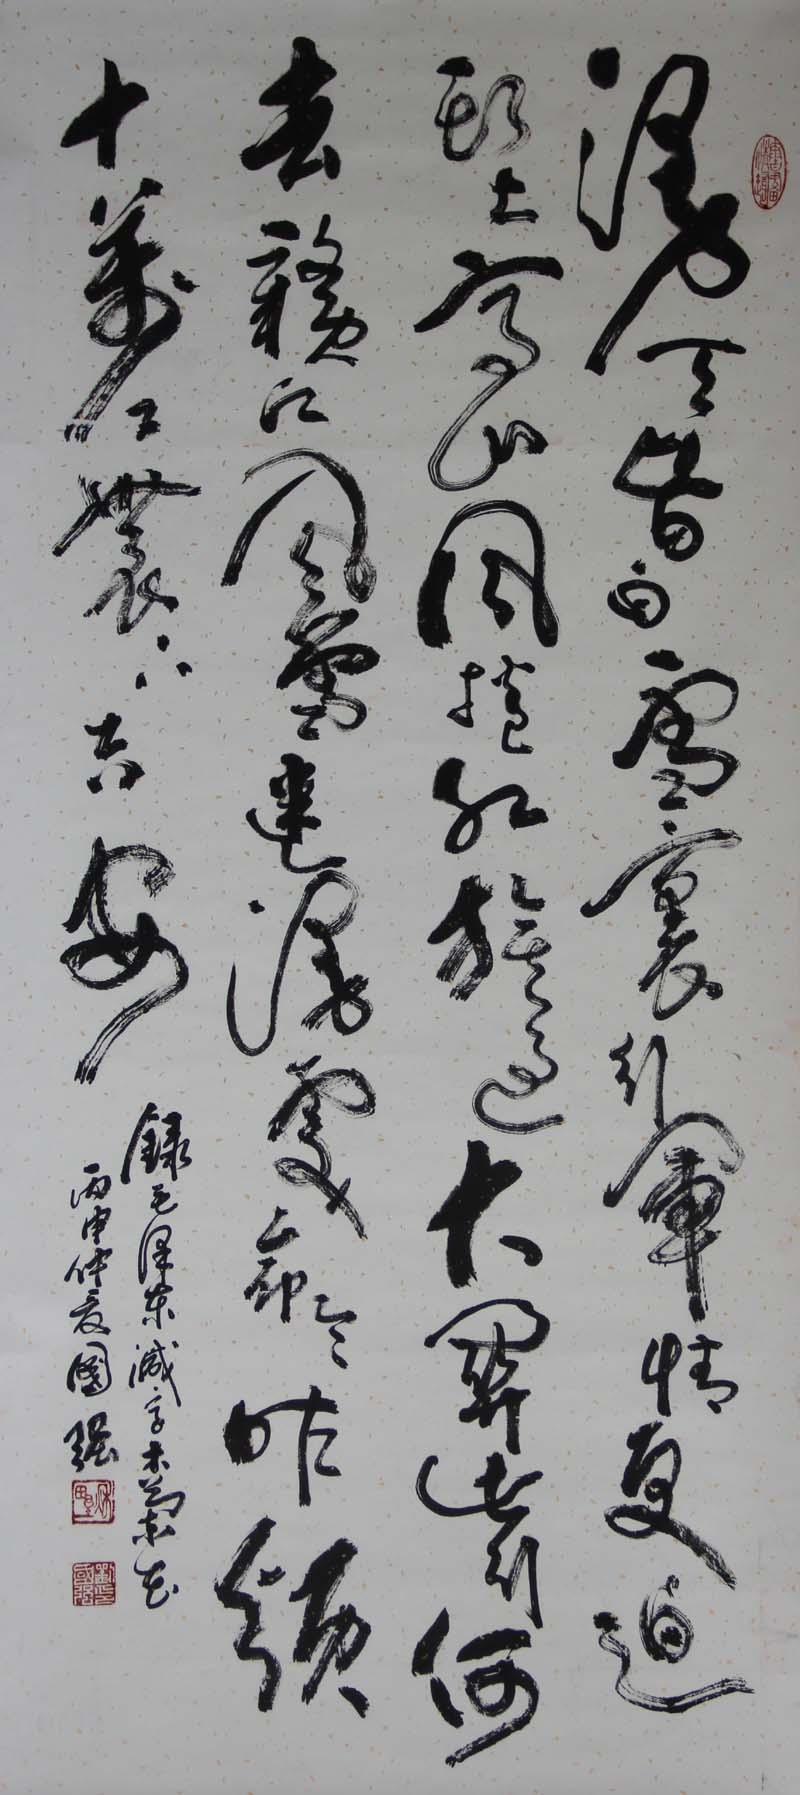 漫天皆白雪裏行軍情更迫
頭上高山風捲紅旗過大關此行何
去贛江風雪迷漫處命令昨頒
十萬工農下吉安
錄毛澤東減字木蘭花
丙申仲夏國強